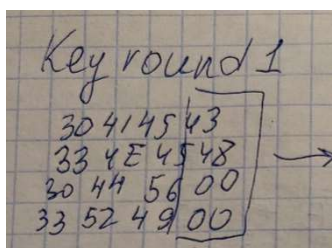 Key round 1
30 41 45 43
33 4E 45 48
30 44 56 00
33 52 49 00